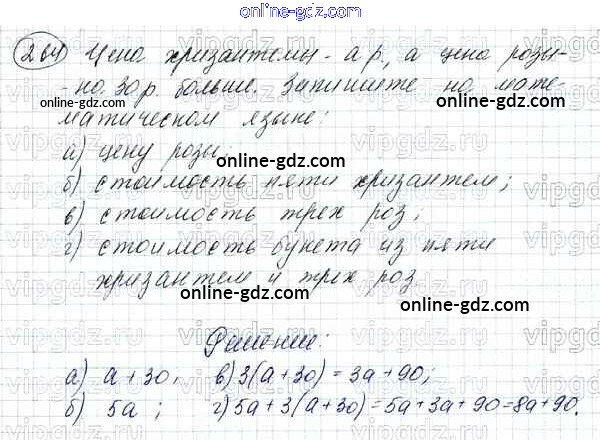 online-gdz.com
264 Цена хризантемы - а р., а цена розы -
- на 30 р. больше. Запишите на мате-
матическом языке:
а) цену розы;
б) стоимость пяти хризантем;
в) стоимость трех роз;
г) стоимость букета из пяти
хризантем и трех роз
Решение:
а) a + 30, в) 3(a + 30) = 3a + 90;
б) 5a ; г) 5a + 3(a + 30) = 5a + 3a + 90 = 8a + 90.
online-gdz.com
online-gdz.com
online-gdz.com
online-gdz.com
online-gdz.com
online-gdz.com